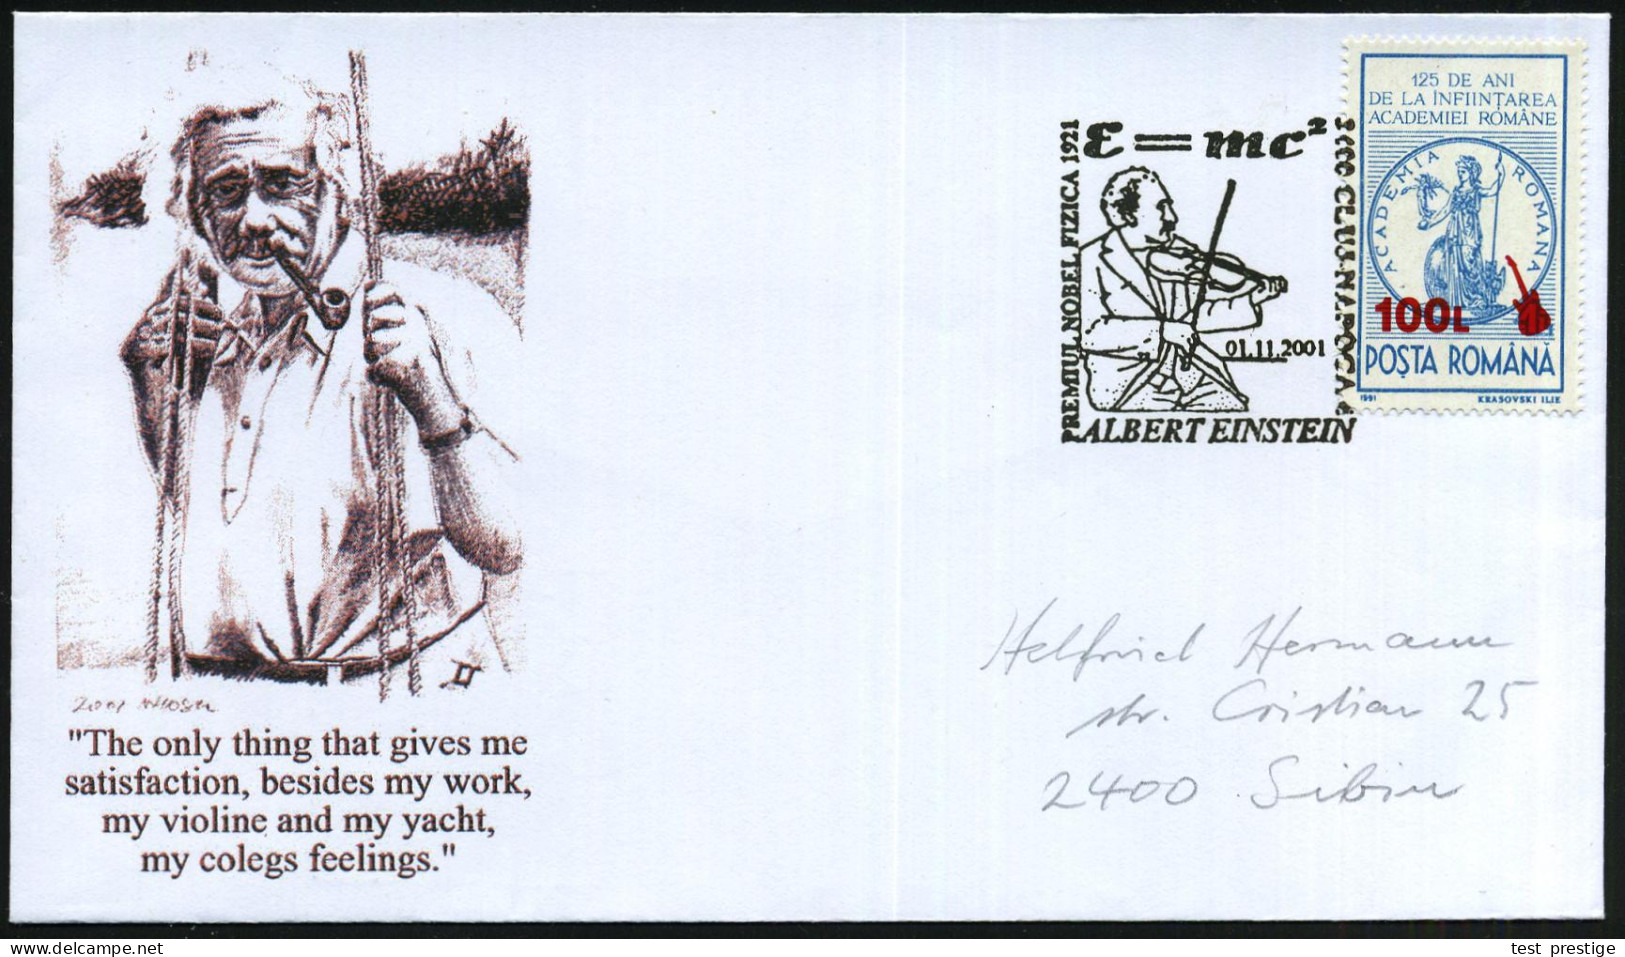 "The only thing that gives me
satisfaction, besides my work,
my violine and my yacht,
my colegs feelings."
2001
PREMIUL NOBEL FIZICA 1921
E=mc²
01.11.2001
ALBERT EINSTEIN
CLUJ-NAPOCA
125 DE ANI
DE LA ÎNFIINȚAREA
ACADEMIEI ROMÂNE
ACADEMIA ROMANA
100L
POȘTA ROMÂNĂ
1991 KRASOVSKI ILIE
Helfried Hermann
str. Cristian 25
2400 Sibiu
test_prestige